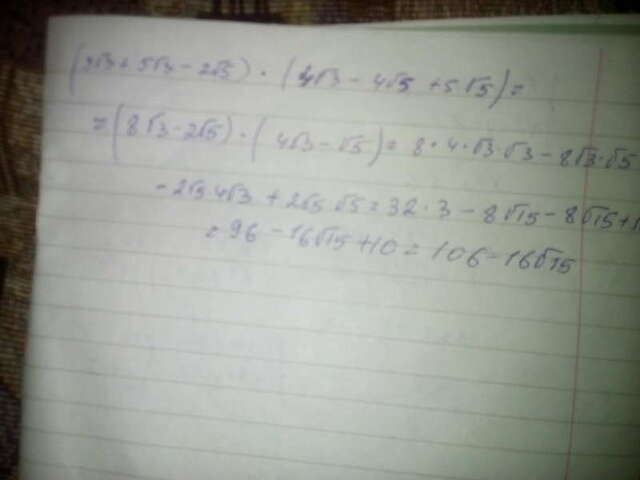 (3√3 + 5√3 - 2√5) · (4√3 - 4√5 + 5√5) =
= (8√3 - 2√5) · (4√3 - √5) = 8 · 4 · √3 · √3 - 8√3 · √5
- 2√5 4√3 + 2√5 √5 = 32 · 3 - 8√15 - 8√15 + 1
= 96 - 16√15 + 10 = 106 - 16√15